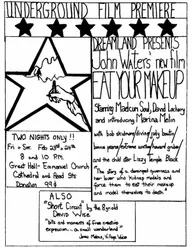 UNDERGROUND FILM PREMIERE
DREAMLAND PRESENTS
John Waters new film
EAT YOUR MAKEUP
Starring Maelcum Soul, David Lochary
and introducing Marina Melin
with bob skidmore/divine/judy boutin/
and the child star Lizzy Temple Black
"The story of a deranged governess and
her lover who kidnap models and
force them to eat their makeup
and model themselves to death."
TWO NIGHTS ONLY!!
Fri - Sat Feb 23rd - 24th
8 and 10 P.M.
Great Hall - Emmanuel Church
Cathedral and Read Sts
Donation 99¢
ALSO
"Short Circuit" by the 8 yr old
David Wise
"Bits and moments of free creative
expression - a small wonderland"
Jonas Mekas, Village Voice